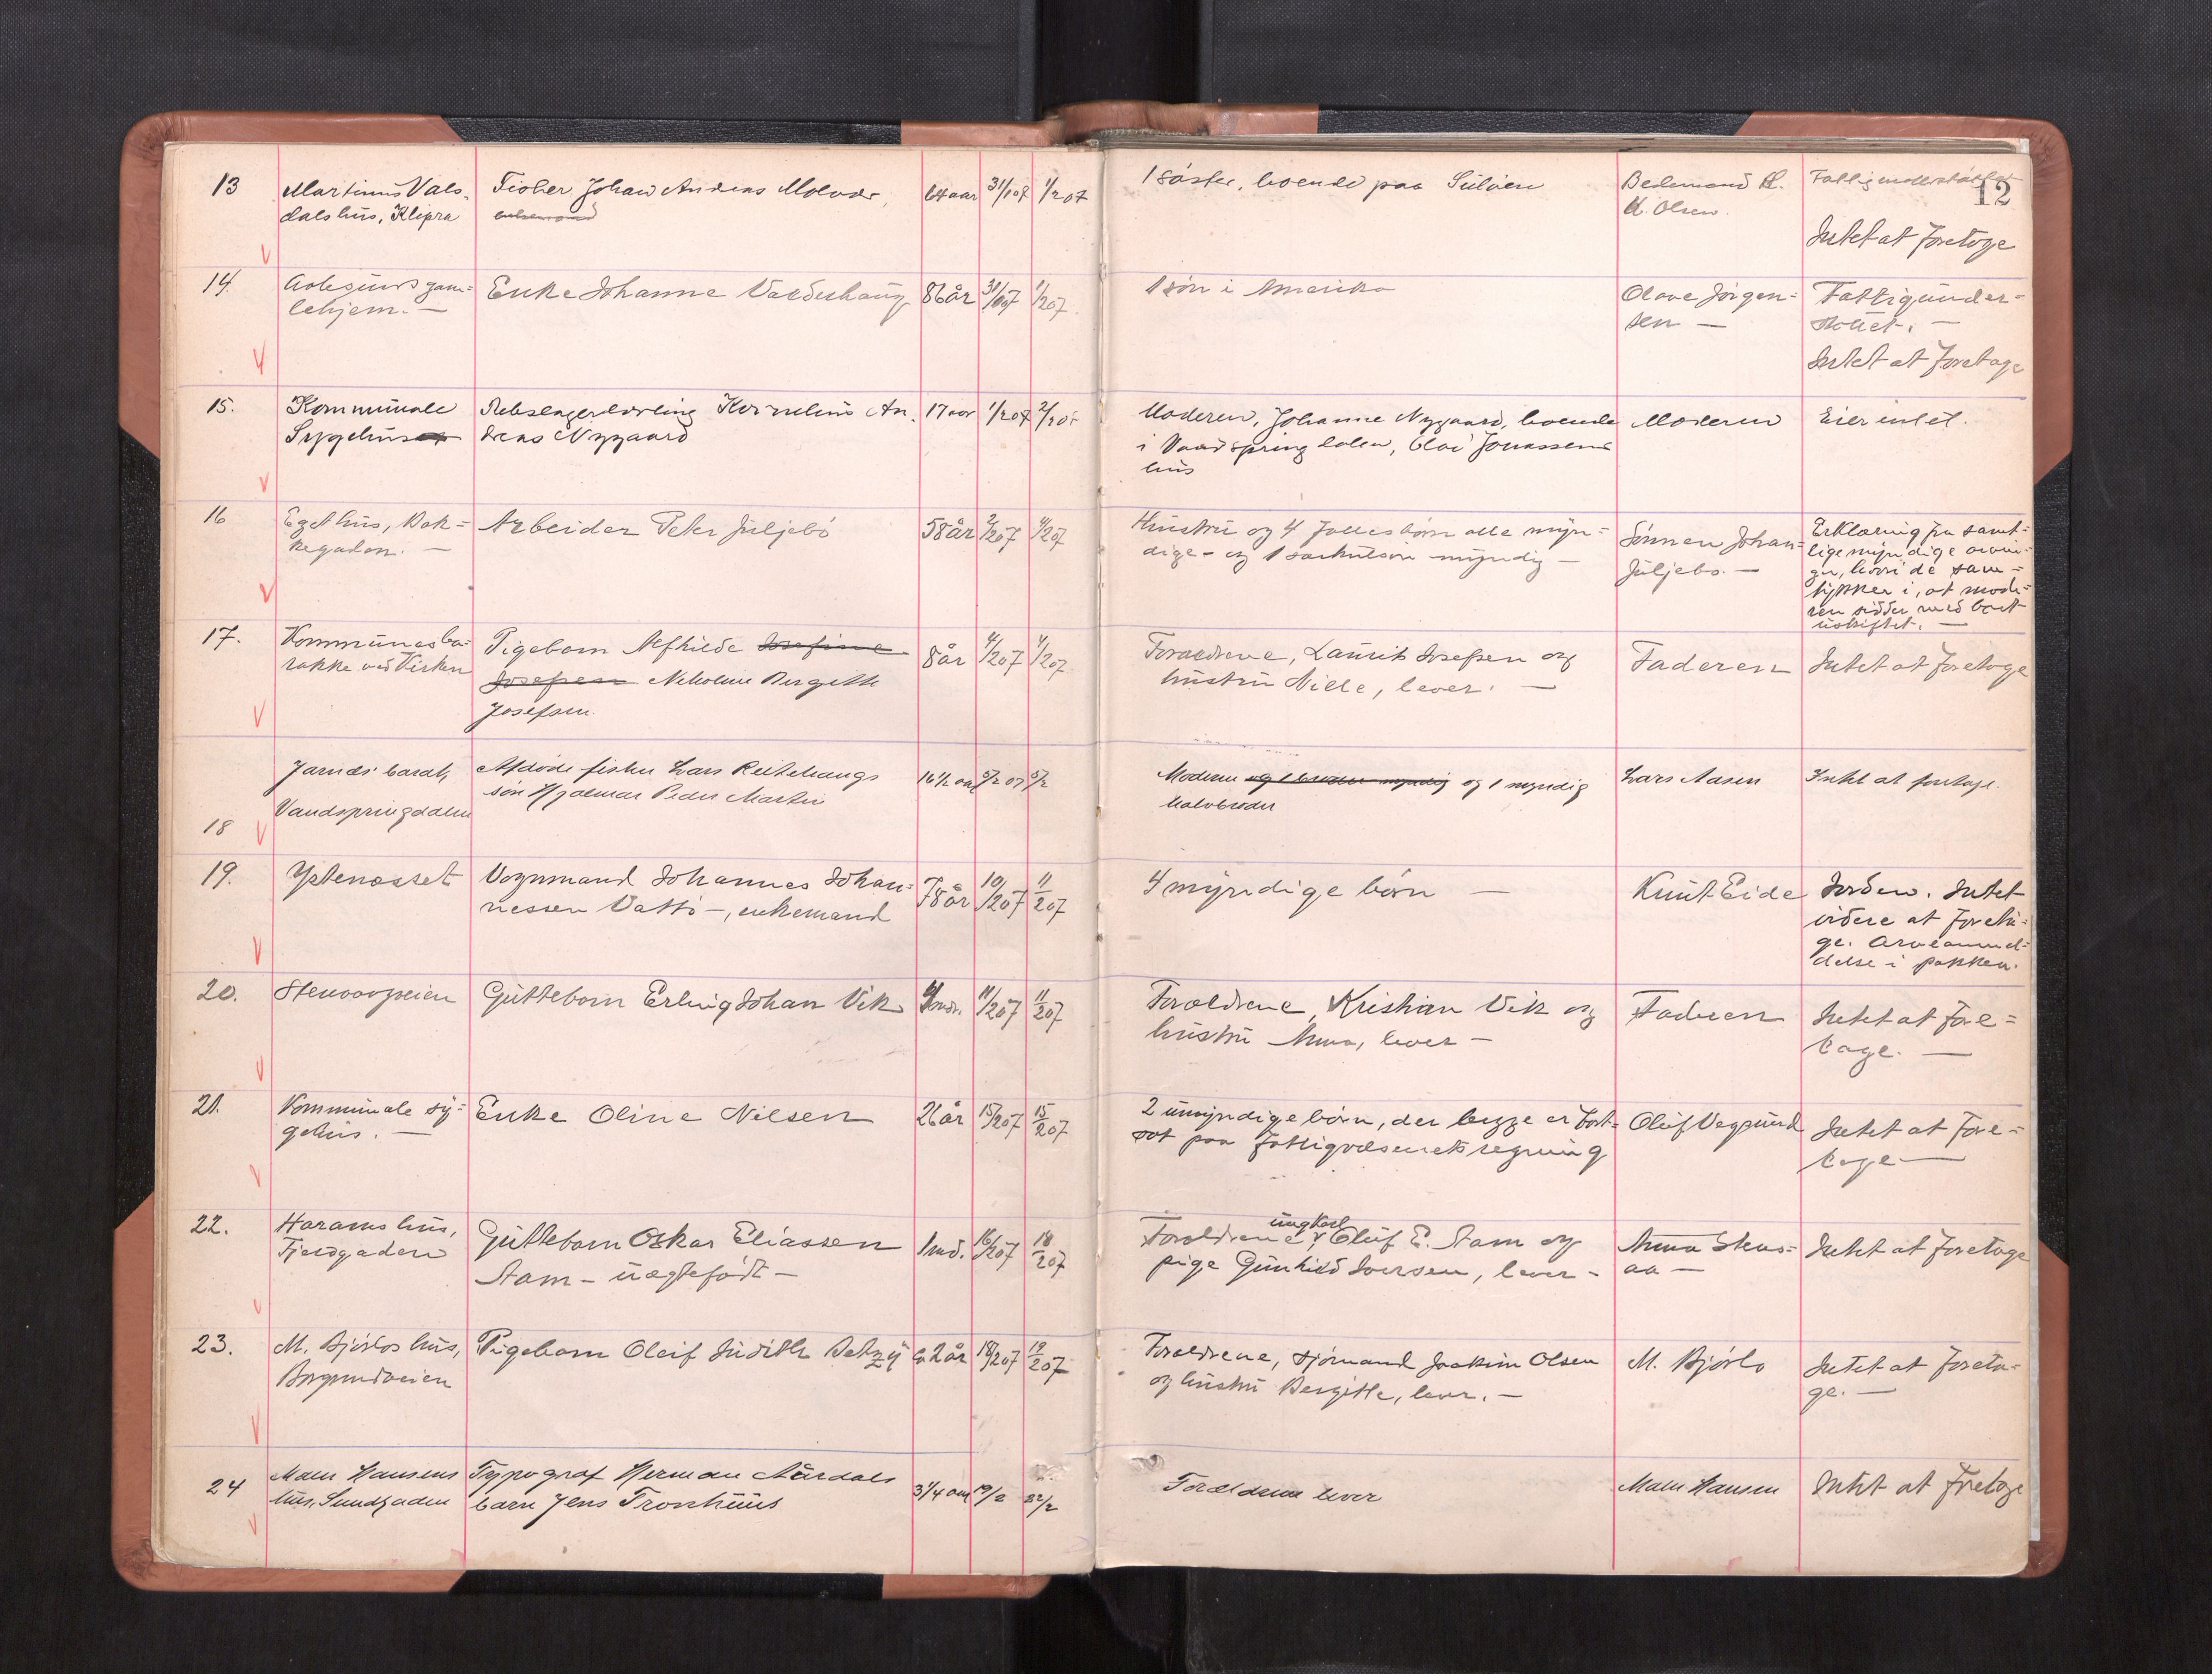 12
13 Martinus Vals-
dalshus, Klipra
Fisker Johan Andreas Molvær,
64 aar 31/1 07 1/2 07
1 søster, boende paa Suløen
Bedemand
K. Olsen.
Fattigunderstøttet
Intet at foretage
14. Aalesunds gam-
lehjem. —
Enke Johanne Valderhaug
86 år 31/1 07 1/2 07
1 søn i Amerika
Olave Jørgen-
sen —
Fattigunder-
støttet. —
Intet at foretage
15. Kommunale
Sygehus
Rebslagerlærling Kornelius An-
dreas Nygaard
17 aar 1/2 07 2/2 07
Moderen, Johanne Nygaard, boende
i Vandspringdalen, Olai Jonassens
hus
Moderen
Eier intet.
16 Eget hus, Bak-
kegaden. —
Arbeider Peter Juljebø
58 år 2/2 07 4/2 07
Hustru og 4 fællesbørn alle myn-
dige - og 1 særkulsøn myndig —
Sønnen Johan
Juljebø. —
Erklæring fra samt-
lige myndige arvin-
ger, hvori de sam-
tykker i, at mode-
ren sidder med boet
uskiftet. —
17. Kommunes ba-
rakke ved Kirken
Pigebarn Alfhilde Josefine
Josefsen Nikoline Bergitte
Josefsen
8 år 4/2 07 4/2 07
Forældrene, Laurits Josefsen og
hustru Nille, lever. —
Faderen
Intet at foretage
18 Jarnæs' barak,
Vandspringdalen
Afdøde fisker Lars Reitehaugs
søn Hjalmar Peder Martin
16 1/2 aar 5/2 07 5/2
Moderen og 1 broder myndig og 1 myndig
halvbroder
Lars Aasen
Intet at foretage.
19. Ystenæsset
Vognmand Johannes Johan-
nessen Vattø -, enkemand
78 år 10/2 07 11/2 07
4 myndige børn —
Knut Eide
Jorden. Intet
videre at foreta-
ge. Arveanmel-
delse i pakken.
20. Stenvaagveien
Gutteborn Erling Johan Vik
mdr. 11/2 07 11/2 07
Forældrene, Kristian Vik og
hustru Anna, lever —
Faderen
Intet at fore-
tage. —
21. Kommunale sy-
gehus. —
Enke Oline Nilsen
26 år 15/2 07 15/2 07
2 umyndige børn, der begge er bort-
sat paa fattigvæsenets regning
Oluf Vegsund
Intet at fore-
tage —
22. Harams hus,
Fjeldgaden
Guttebarn Oskar Eliassen
Stam - uægtefødt -
1 md. 16/2 07 18/2 07
ungkarl
Forældrene Oluf E. Stam og
pige Gunhild Iversen, lever -
Anna Stens-
aa —
Intet at foretage
23. M. Bjørlos hus,
Borgundveien
Pigebarn Oleif Judith Betzy
ca 2 år 18/2 07 19/2 07
Forældrene, sjømand Joakim Olsen
og hustru Bergitte, lever. —
M. Bjørlo
Intet at foreta-
ge. —
24 Malen Hansens
hus, Sundgaden
Typograf Herman Aurdals
barn Jens Tronhuus
3 1/4 aar 19/2 22/2
Forældrene lever
Malen Hansen
Intet at foretage